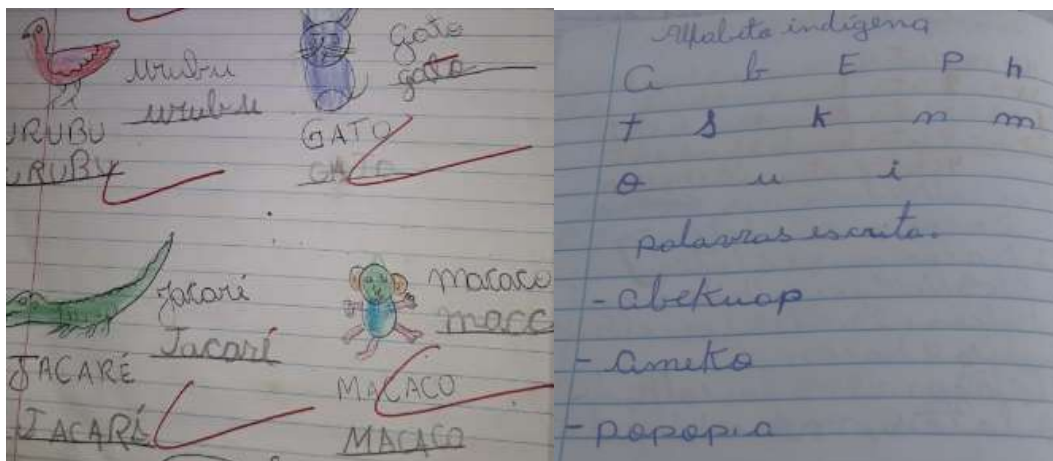 urubu
urubu
URUBU
URUBU
gato
gato
GATO
GATO
jacaré
Jacaré
JACARÉ
JACARÉ
macaco
macc
MACACO
MACACO
Alfabeto indígena
a b E P h
t s k n m
o u i
palavras escrita.
- abekuap
- ameko
- popopia